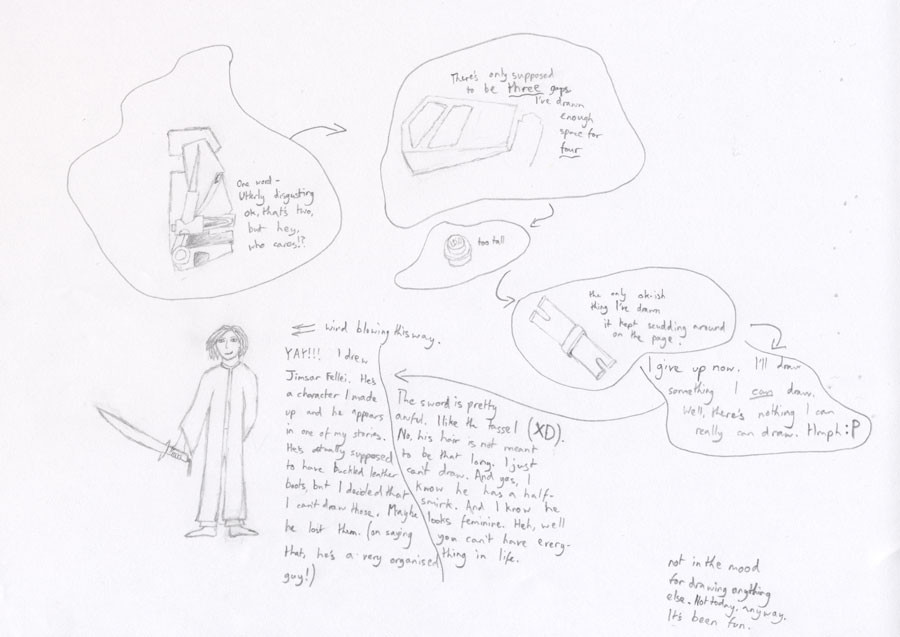 One word -
Utterly disgusting
ok, that's two,
but hey,
who cares!?
There's only supposed
to be three gaps
I've drawn
enough
space for
four
too tall
the only ok-ish
thing I've drawn
it kept scudding around
on the page!
I give up now. I'll draw
something I can draw.
Well, there's nothing I can
really can draw. Hmph :P
wind blowing this way.
YAY!!! I drew
Jimsar Fellei. He's
a character I made
up and he appears
in one of my stories.
He's actually supposed
to have buckled leather
boots, but I decided that
I can't draw those. Maybe
he lost them. (on saying
that, he's a very organised
guy!)
The sword is pretty
awful. I like the tassel (XD).
No, his hair is not meant
to be that long. I just
can't draw. And yes, I
know he has a half-
smirk. And I know he
looks feminine. Heh, well
you can't have every-
thing in life.
not in the mood
for drawing anything
else. Not today, anyway.
It's been fun.